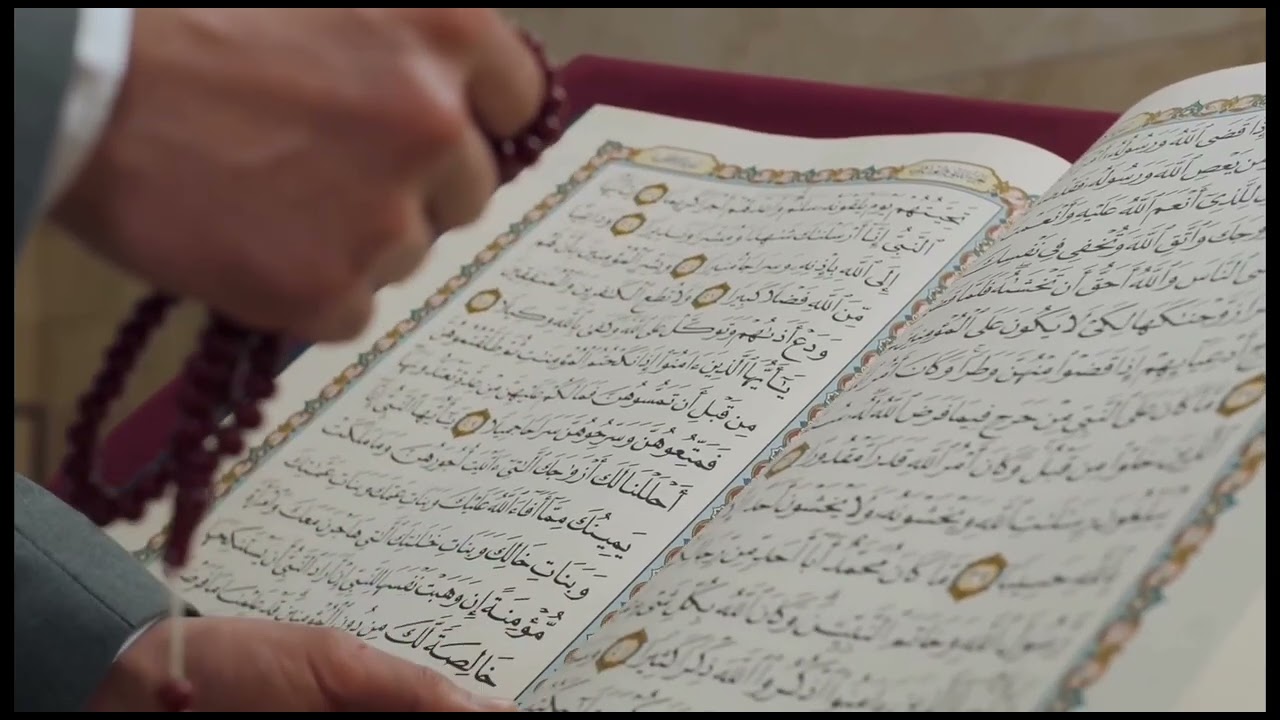 إِذَا قَضَى ٱللَّهُ وَرَسُولُهُۥ
يَعْصِ ٱللَّهَ وَرَسُولَهُۥ فَقَدْ
لِلَّذِىٓ أَنْعَمَ ٱللَّهُ عَلَيْهِ وَأَنْعَمْ
وَٱتَّقِ ٱللَّهَ وَتُخْفِى فِى نَفْسِكَ
ٱلنَّاسَ وَٱللَّهُ أَحَقُّ أَن تَخْشَىٰهُ فَلَمَّا
زَوَّجْنَٰكَهَا لِكَىْ لَا يَكُونَ عَلَى ٱلْمُؤْمِنِينَ
أَدْعِيَآئِهِمْ إِذَا قَضَوْا۟ مِنْهُنَّ وَطَرًا وَكَانَ
مَّا كَانَ عَلَى ٱلنَّبِىِّ مِنْ حَرَجٍ فِيمَا فَرَضَ ٱللَّهُ
ٱلَّذِينَ خَلَوْا۟ مِن قَبْلُ وَكَانَ أَمْرُ ٱللَّهِ قَدَرًا مَّقْدُورًا
رِسَٰلَٰتِ ٱللَّهِ وَيَخْشَوْنَهُۥ وَلَا يَخْشَوْنَ
حَسِيبًا مَّا كَانَ مُحَمَّدٌ أَبَآ أَحَدٍ مِّن
رَّسُولَ ٱللَّهِ وَخَاتَمَ ٱلنَّبِيِّـۧنَ وَكَانَ ٱللَّهُ بِكُلِّ شَىْءٍ
ٱذْكُرُوا۟ ٱللَّهَ ذِكْرًا كَثِيرًا
تَحِيَّتُهُمْ يَوْمَ يَلْقَوْنَهُۥ سَلَٰمٌ وَأَعَدَّ لَهُمْ أَجْرًا كَرِيمًا يَٰٓأَيُّهَا
ٱلنَّبِىُّ إِنَّآ أَرْسَلْنَٰكَ شَٰهِدًا وَمُبَشِّرًا وَنَذِيرًا وَدَاعِيًا
إِلَى ٱللَّهِ بِإِذْنِهِۦ وَسِرَاجًا مُّنِيرًا وَبَشِّرِ ٱلْمُؤْمِنِينَ بِأَنَّ لَهُم
مِّنَ ٱللَّهِ فَضْلًا كَبِيرًا وَلَا تُطِعِ ٱلْكَٰفِرِينَ وَٱلْمُنَٰفِقِينَ
وَدَعْ أَذَىٰهُمْ وَتَوَكَّلْ عَلَى ٱللَّهِ وَكَفَىٰ بِٱللَّهِ وَكِيلًا
يَٰٓأَيُّهَا ٱلَّذِينَ ءَامَنُوٓا۟ إِذَا نَكَحْتُمُ ٱلْمُؤْمِنَٰتِ ثُمَّ طَلَّقْتُمُوهُنَّ
مِن قَبْلِ أَن تَمَسُّوهُنَّ فَمَا لَكُمْ عَلَيْهِنَّ مِنْ عِدَّةٍ تَعْتَدُّونَهَا
فَمَتِّعُوهُنَّ وَسَرِّحُوهُنَّ سَرَاحًا جَمِيلًا يَٰٓأَيُّهَا ٱلنَّبِىُّ إِنَّآ
أَحْلَلْنَا لَكَ أَزْوَٰجَكَ ٱلَّٰتِىٓ ءَاتَيْتَ أُجُورَهُنَّ وَمَا مَلَكَتْ
يَمِينُكَ مِمَّآ أَفَآءَ ٱللَّهُ عَلَيْكَ وَبَنَاتِ عَمِّكَ وَبَنَاتِ عَمَّٰتِكَ
وَبَنَاتِ خَالِكَ وَبَنَاتِ خَٰلَٰتِكَ ٱلَّٰتِى هَاجَرْنَ مَعَكَ وَٱمْرَأَةً
مُّؤْمِنَةً إِن وَهَبَتْ نَفْسَهَا لِلنَّبِىِّ إِنْ أَرَادَ ٱلنَّبِىُّ أَن يَسْتَنكِحَهَا
خَالِصَةً لَّكَ مِن دُونِ ٱلْمُؤْمِنِينَ قَدْ عَلِمْنَا مَا فَرَضْنَا